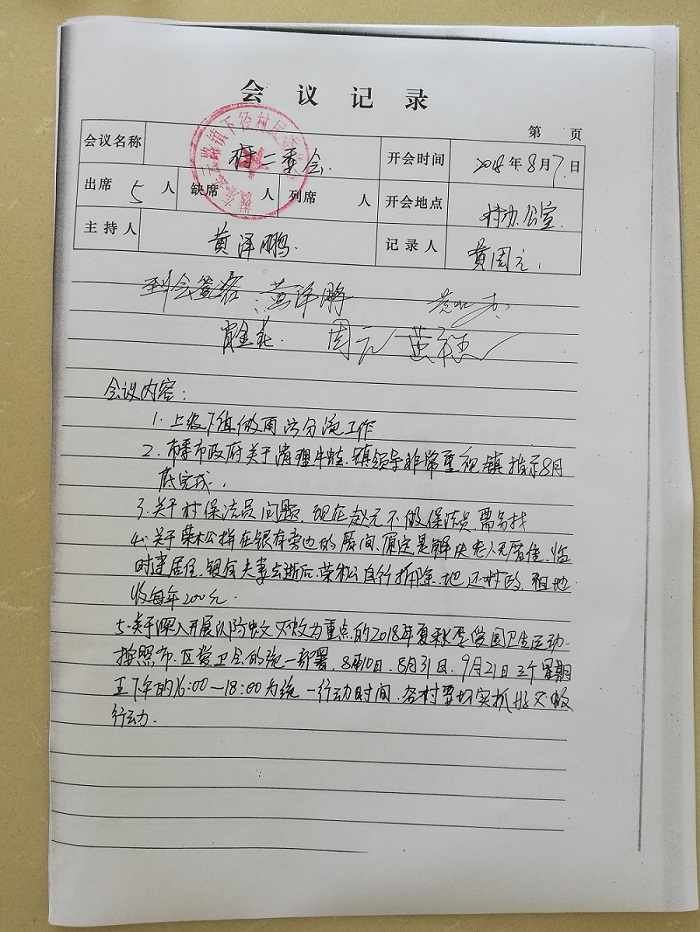 会议记录
第 页
会议名称 村二委会 开会时间 2018年8月7日
出席 5 人 缺席 人 列席 人 开会地点 村办公室
主持人 黄泽鹏 记录人 黄周元
到会签名 黄泽鹏
周元
会议内容:
1. 上级下镇做雨污分流工作
2. 市政府关于清理牛蛙,镇领导非常重视,镇指示8月
底完成.
3. 关于村保洁员问题,现在赵元不做保洁员,需另找
4. 关于荣松拼在银存旁边的房间,原定是解决老人无居住,临
时建居住,银存夫妻去逝后,荣松自行拆除,地还村政,租地
收每年200元.
5. 关于深入开展以防蚊灭蚊为重点的2018年夏秋季爱国卫生运动.
按照市、区爱卫会的统一部署,8月10日、8月31日、9月21日三个星期
五下午的16:00—18:00为统一行动时间,各村要切实抓好灭蚊
行动.